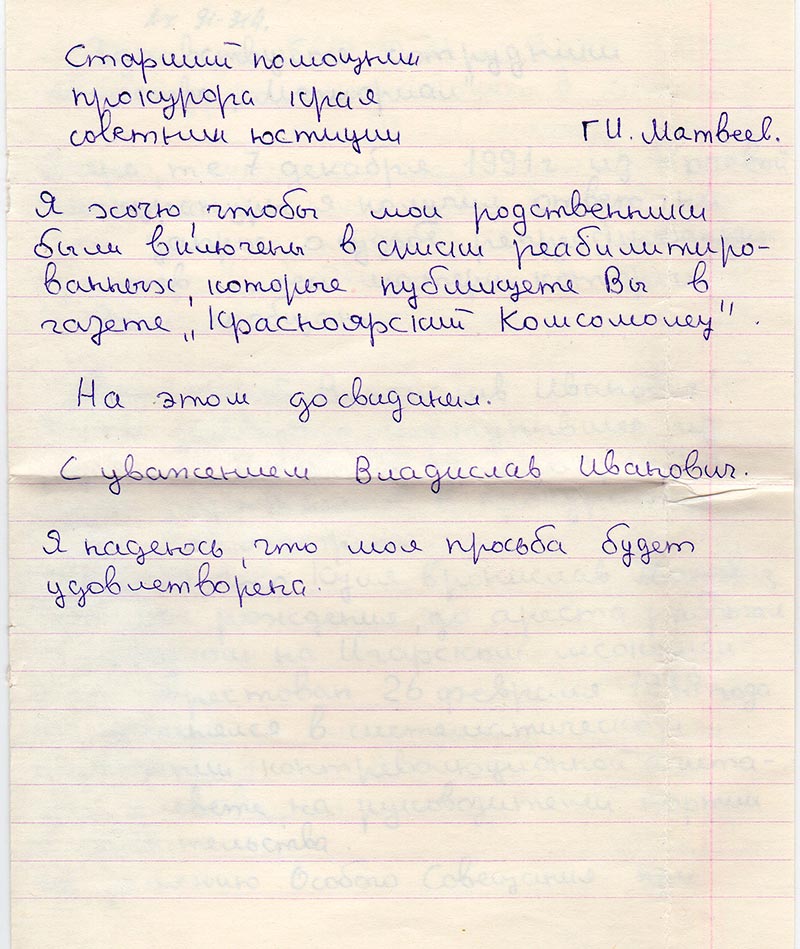 Старший помощник
прокурора края
советник юстиции Г.И. Матвеев.
Я хочу, чтобы мои родственники
были включены в списки реабилитиро-
ванных, которые публикуете Вы в
газете „Красноярский Комсомолец".
На этом до свидания.
С уважением Владислав Иванович.
Я надеюсь, что моя просьба будет
удовлетворена.